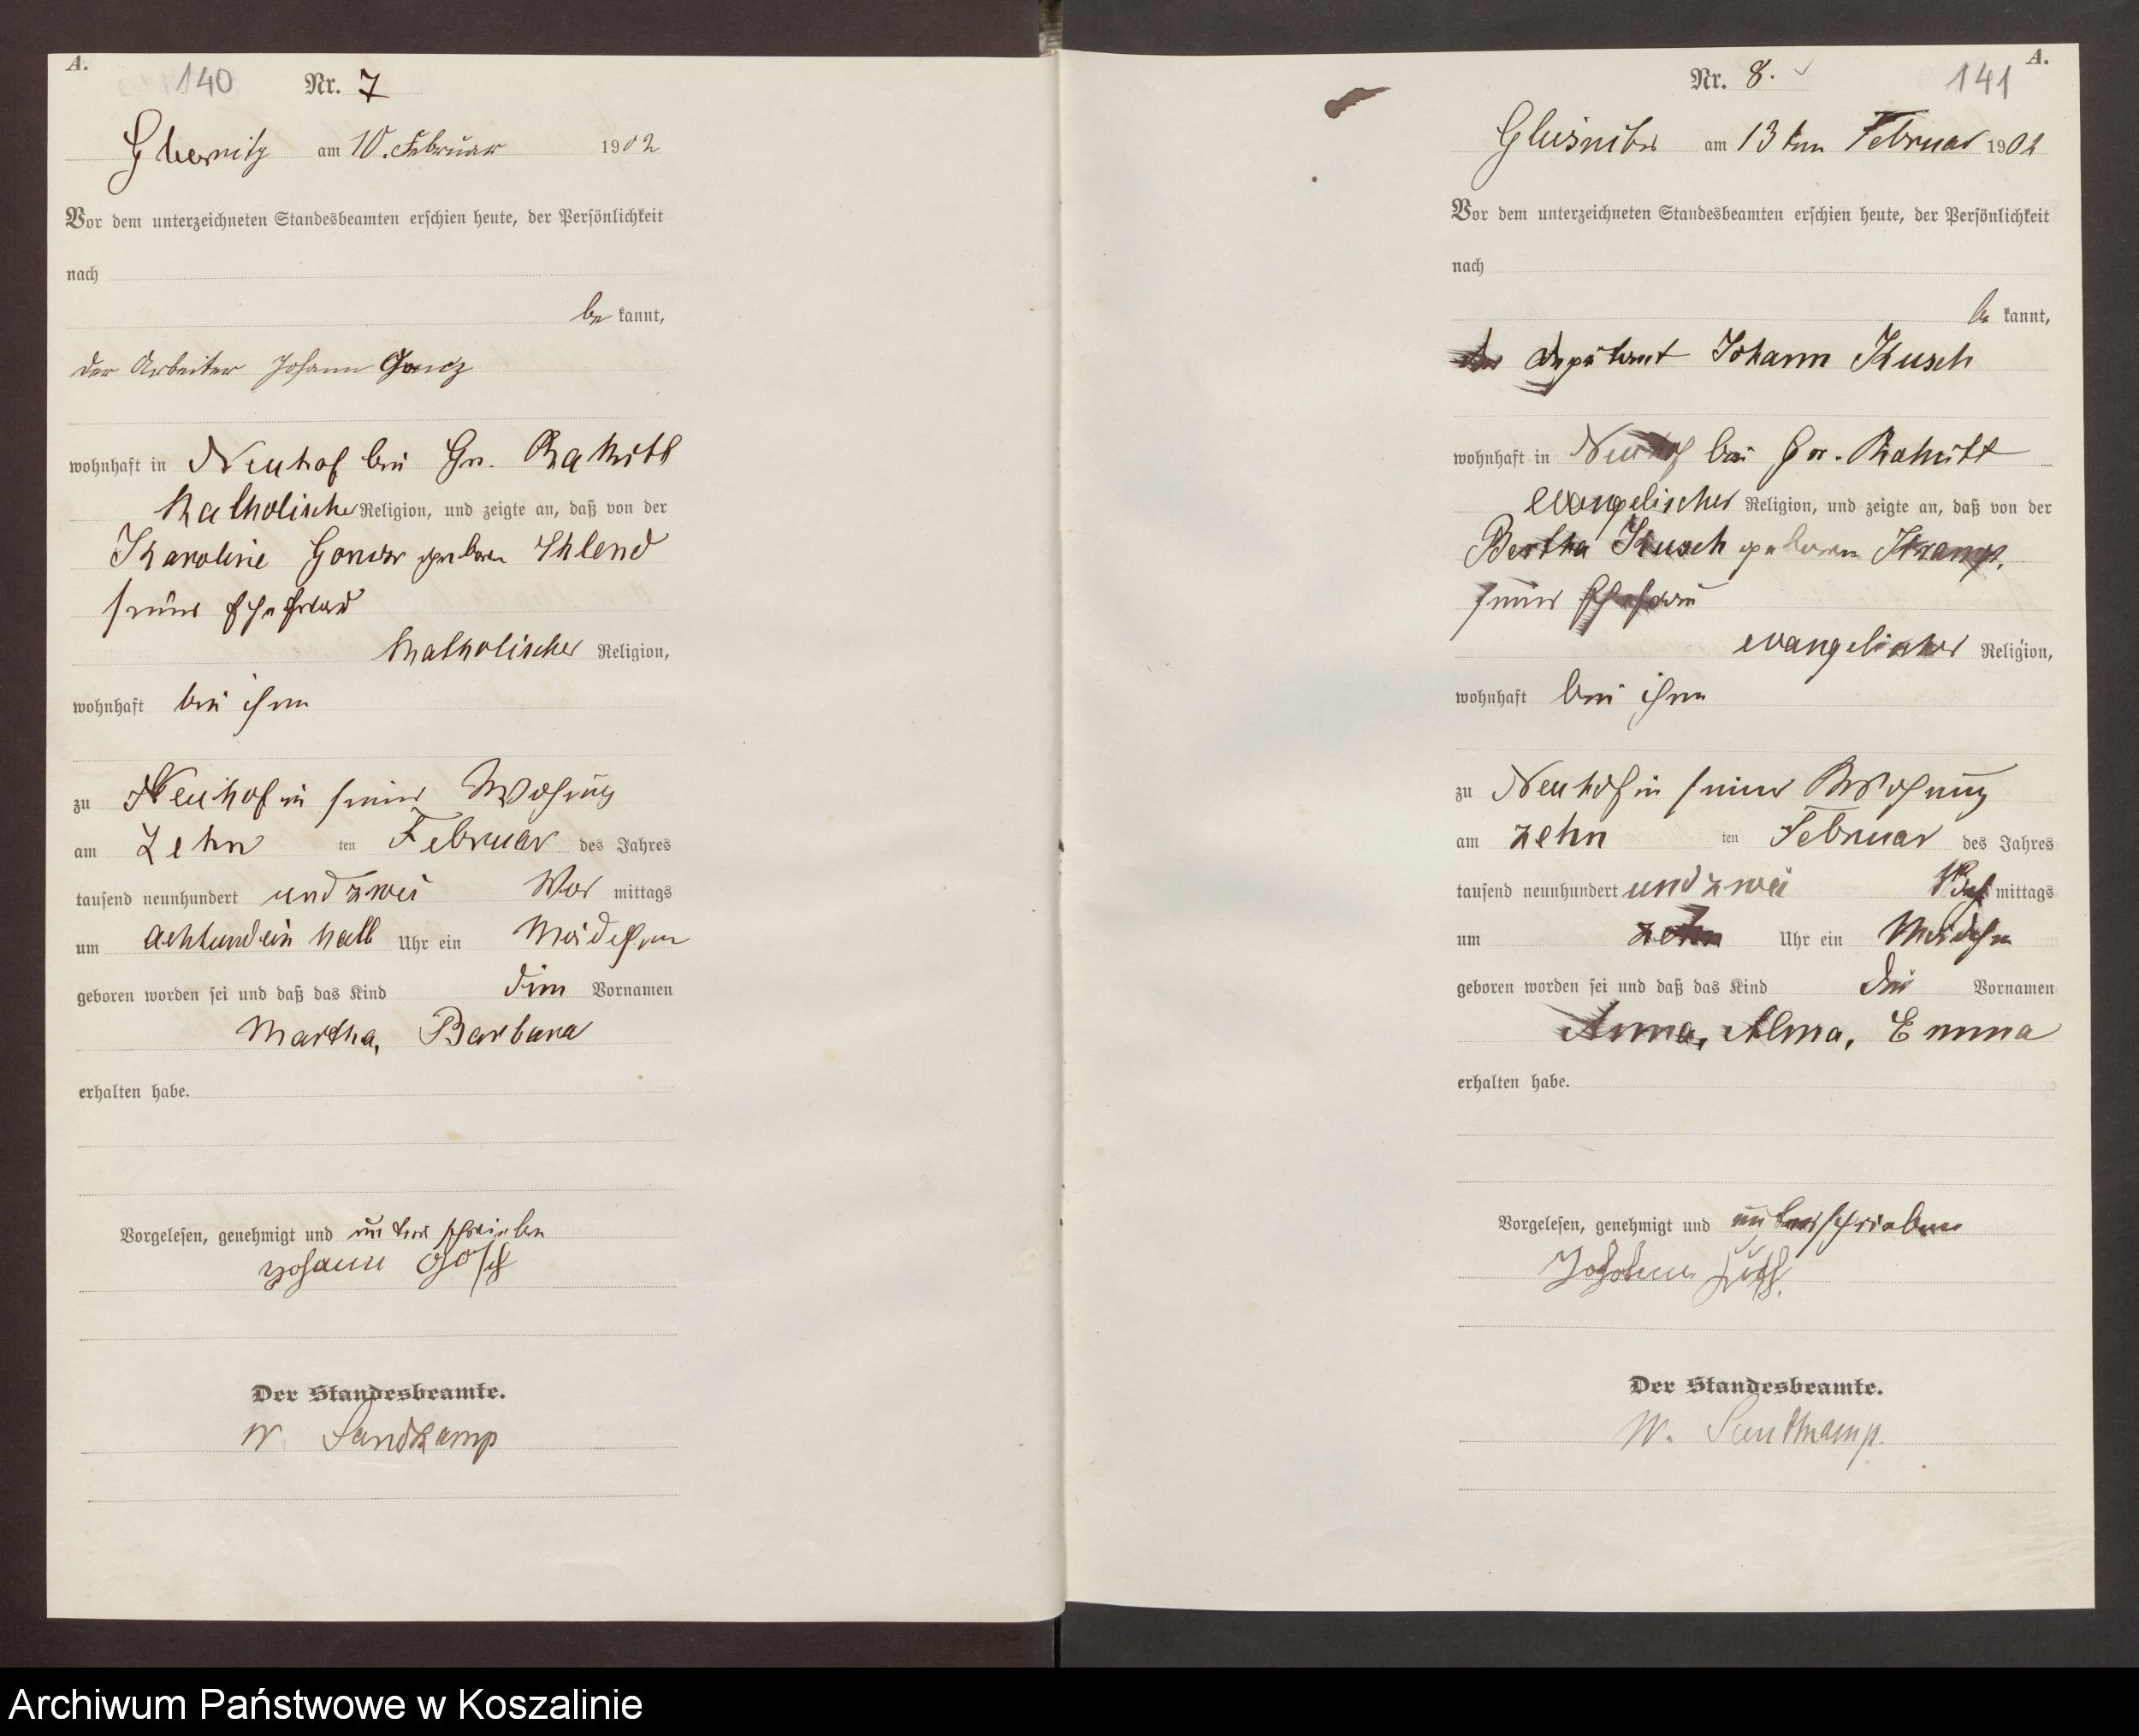 A.
140 Nr. 7
am 10. Februar 1902
Vor dem unterzeichneten Standesbeamten erschien heute, der Persönlichkeit
nach
be kannt,
der Arbeiter Johann
wohnhaft in Neuhof bei Gr. Rakitt
katholischer Religion, und zeigte an, daß von der
Karoline geboren
seiner Ehefrau
katholischer Religion,
wohnhaft bei ihm
zu Neuhof in seiner Wohung
am zehn ten Februar des Jahres
tausend neunhundert und zwei Vor mittags
um achtundein halb Uhr ein Mädchen
geboren worden sei und daß das Kind die Vornamen
Martha, Barbara
erhalten habe.
Vorgelesen, genehmigt und unterschrieben
Johann
Der Standesbeamte.
W. Sandkamp
A.
Nr. 8. 141
am 13ten Februar 1902
Vor dem unterzeichneten Standesbeamten erschien heute, der Persönlichkeit
nach
be kannt,
der Deputant Johann Kusch
wohnhaft in Neuhof bei Gr. Rakitt
evangelischer Religion, und zeigte an, daß von der
Bertha Kusch geboren
seiner Ehefrau
evangelischer Religion,
wohnhaft bei ihm
zu Neuhof in seiner Wohnung
am zehn ten Februar des Jahres
tausend neunhundert und zwei mittags
um zehn Uhr ein Mädchen
geboren worden sei und daß das Kind die Vornamen
Anna, Alma, Emma
erhalten habe.
Vorgelesen, genehmigt und unterschrieben
Johann
Der Standesbeamte.
W. Sandkamp.
Archiwum Państwowe w Koszalinie